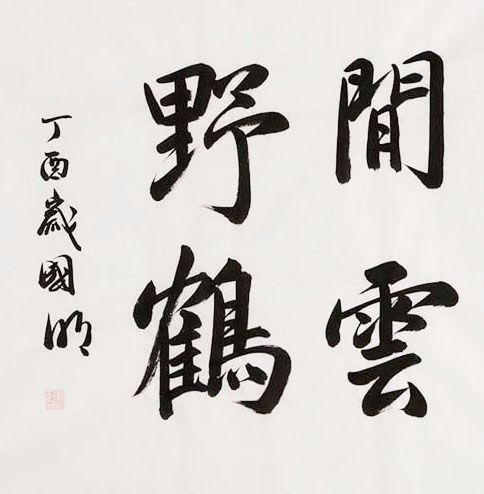 閒雲
野鶴
丁酉歲國明